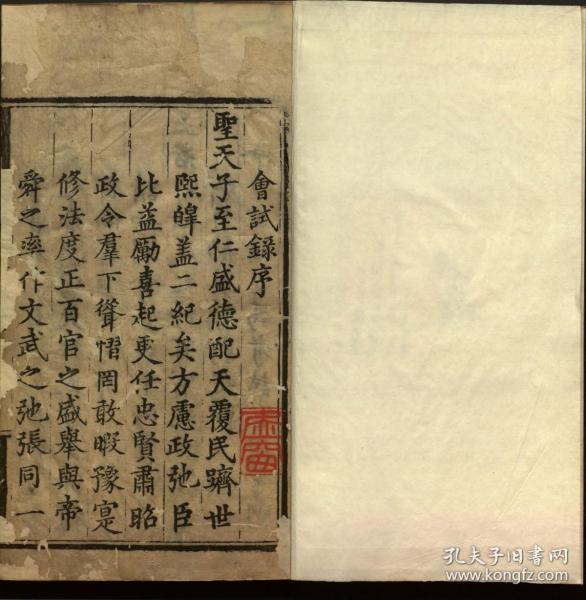 會試錄序
聖天子至仁盛德配天覆民躋世
熙皡蓋二紀矣方慮政弛臣
比益勵喜起更任忠賢肅昭
政令羣下聳慴罔敢暇豫寔
修法度正百官之盛舉與帝
舜之率作文武之弛張同一
孔夫子旧书网
www.kongfz.com